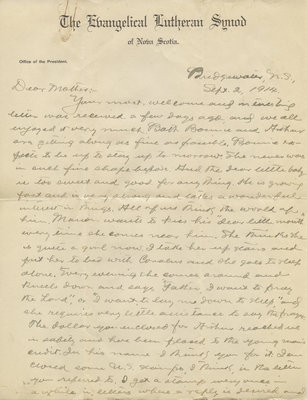 The Evangelical Lutheran Synod
of Nova Scotia.
Office of the President.
Bridgewater, N.S.,
Sept. 2, 1914.
Dear Mother:-
Your most welcome and interesting
letter was received a few days ago and we all
enjoyed it very much. Both Bonnie and
are getting along as fine as possible. Bonnie
to be up to stay up to morrow. She never was
in such fine shape before. And the dear little baby
is too sweet and good for any thing. He is growing
fast and is very strong and takes a wonderful
interest in things. All of us think the world of
him. Marion wants to kiss his "dear little mouth"
every time she comes near him. She thinks she
is quite a girl now. I take her up stairs and
put her to bed with and she goes to sleep
alone. Every evening she comes around and
kneels down and says "Father I want to pray
the Lord," or "I want to lay me down to sleep" and
she requires very little assistance to say the prayer.
The dollar you enclosed for reached us
in safety and has been placed to the young man's
credit. In his name I thank you for it. I en-
closed some U.S. stamps, I think, in the letter
you referred to. I get a stamp every once in
a while in letters where a reply is desired and